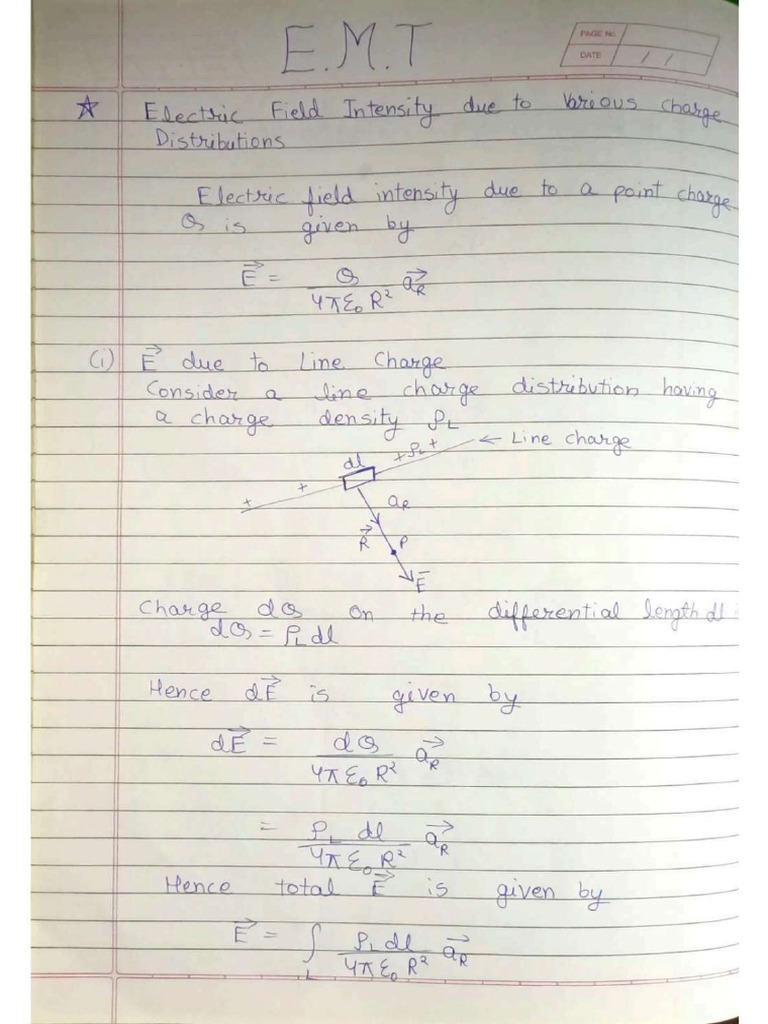 E.M.T
PAGE No.
DATE / /
☆ Electric Field Intensity due to Various Charge
Distributions
Electric field intensity due to a point charge
Q is given by
E⃗ = Q / 4πε₀R² a⃗R
(i) E⃗ due to Line Charge
Consider a line charge distribution having
a charge density ρL
+ + dl +ρL+ ← Line charge
aR
R⃗ P
E⃗
Charge dQ on the differential length dl
dQ = ρL dl
Hence dE⃗ is given by
dE⃗ = dQ / 4πε₀R² a⃗R
= ρL dl / 4πε₀R² a⃗R
Hence total E⃗ is given by
E⃗ = ∫L ρL dl / 4πε₀R² a⃗R